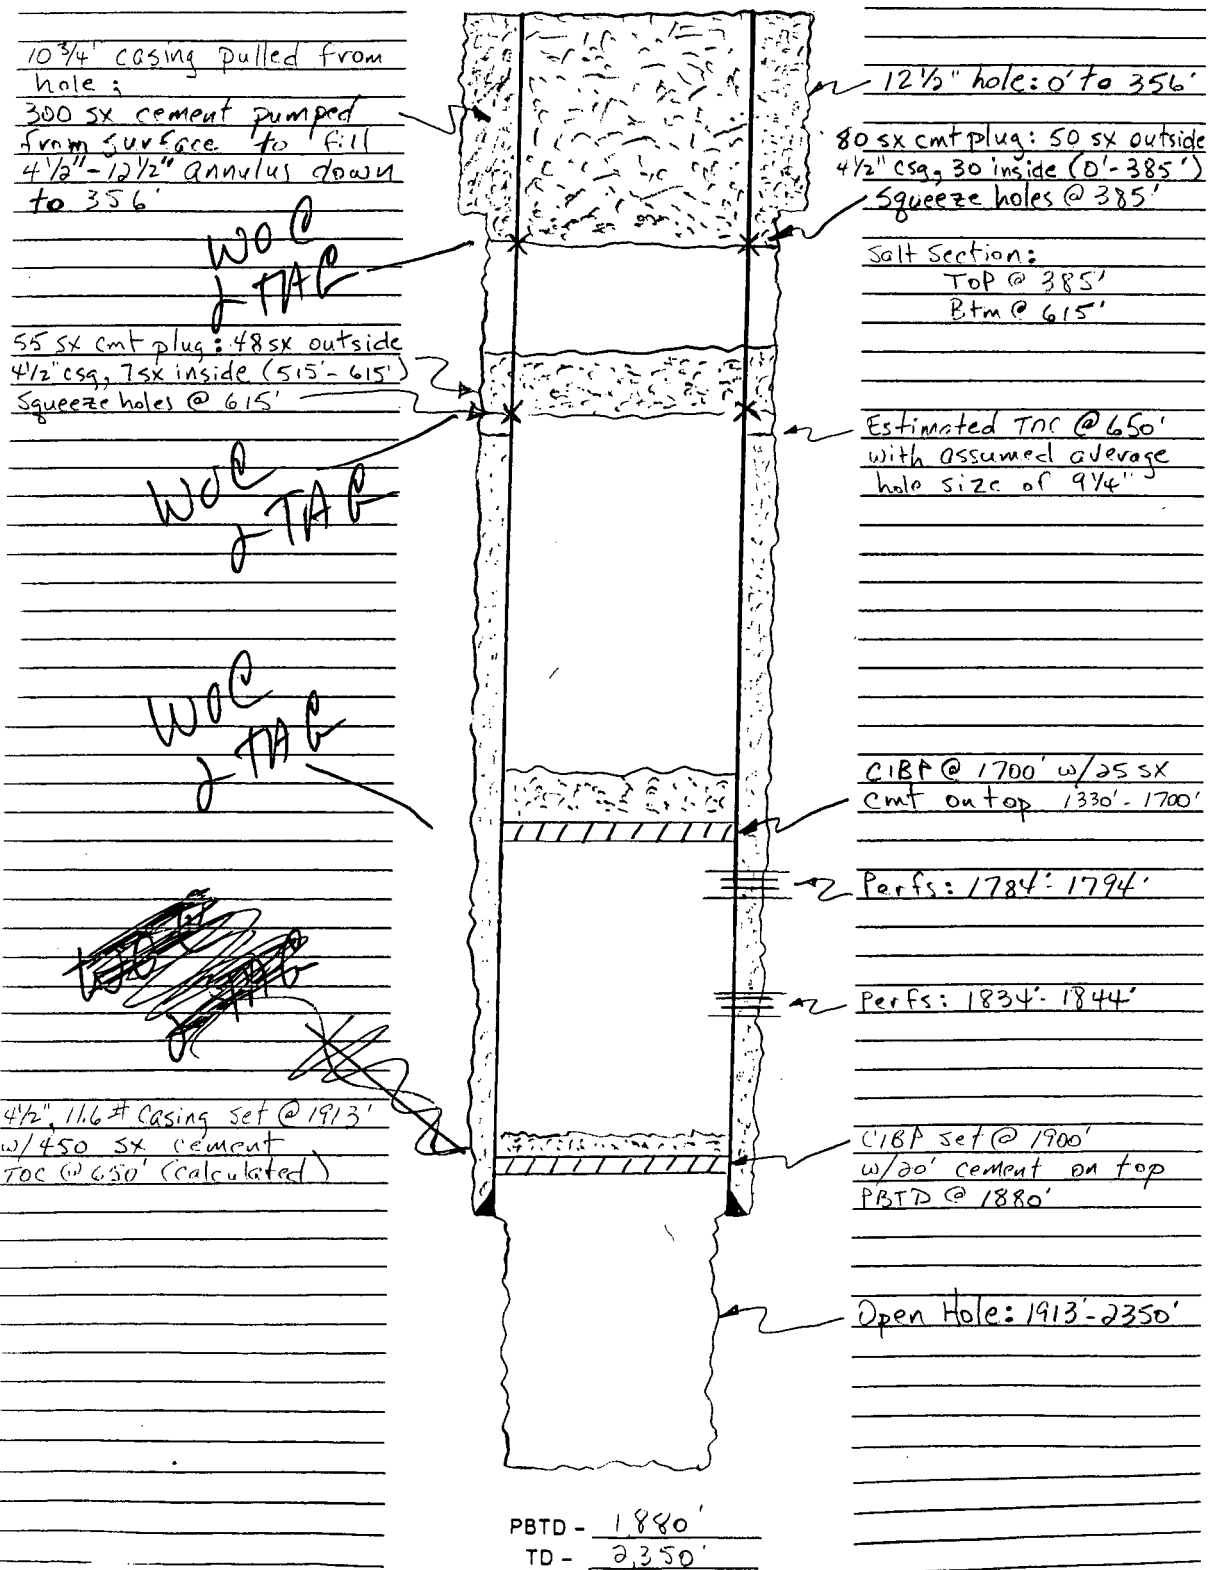 10 3/4" casing pulled from
hole;
300 sx cement pumped
from surface to fill
4 1/2"-12 1/2" annulus down
to 356'
WOC
& TAG
55 sx cmt plug: 48 sx outside
4 1/2" csg, 7 sx inside (515'-615')
Squeeze holes @ 615'
WOC
& TAG
WOC
& TAG
WOC
& TAG
4 1/2", 11.6# Casing set @ 1913'
w/450 sx cement
TOC @ 650' (calculated)
12 1/2" hole: 0' to 356'
80 sx cmt plug: 50 sx outside
4 1/2" csg, 30 inside (0'-385')
Squeeze holes @ 385'
Salt Section:
Top @ 385'
Btm @ 615'
Estimated TOC @ 650'
with assumed average
hole size of 9 1/4"
CIBP @ 1700' w/25 sx
cmt on top 1330'-1700'
Perfs: 1784'-1794'
Perfs: 1834'-1844'
CIBP set @ 1900'
w/20' cement on top
PBTD @ 1880'
Open Hole: 1913'-2350'
PBTD - 1880'
TD - 2,350'